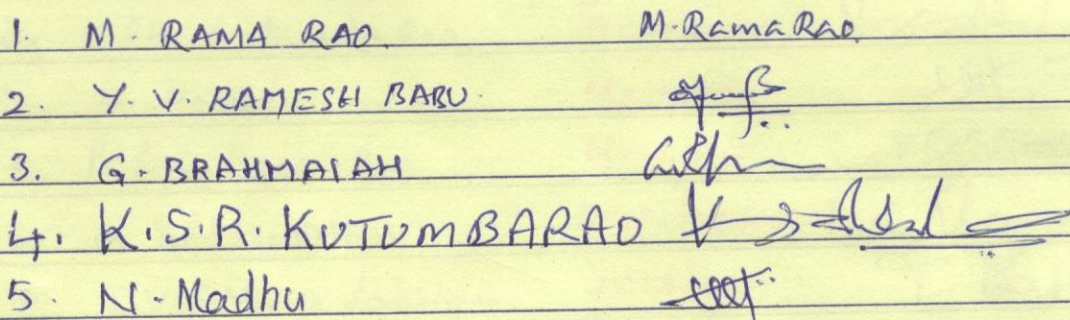 1. M. RAMA RAO. M. Rama Rao
2. Y. V. RAMESH BABU.
3. G. BRAHMAIAH
4. K.S.R. KUTUMBARAO
5. N. Madhu